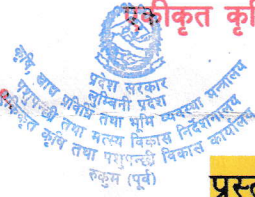 एकीकृत कृषि
प्रदेश सरकार
लुम्बिनी प्रदेश
कृषि, खाद्य प्रविधि तथा भूमि व्यवस्था मन्त्रालय
पशुपन्छी तथा मत्स्य विकास निर्देशनालय
एकीकृत कृषि तथा पशुपन्छी विकास कार्यालय
रुकुम (पूर्व)
प्रस्त